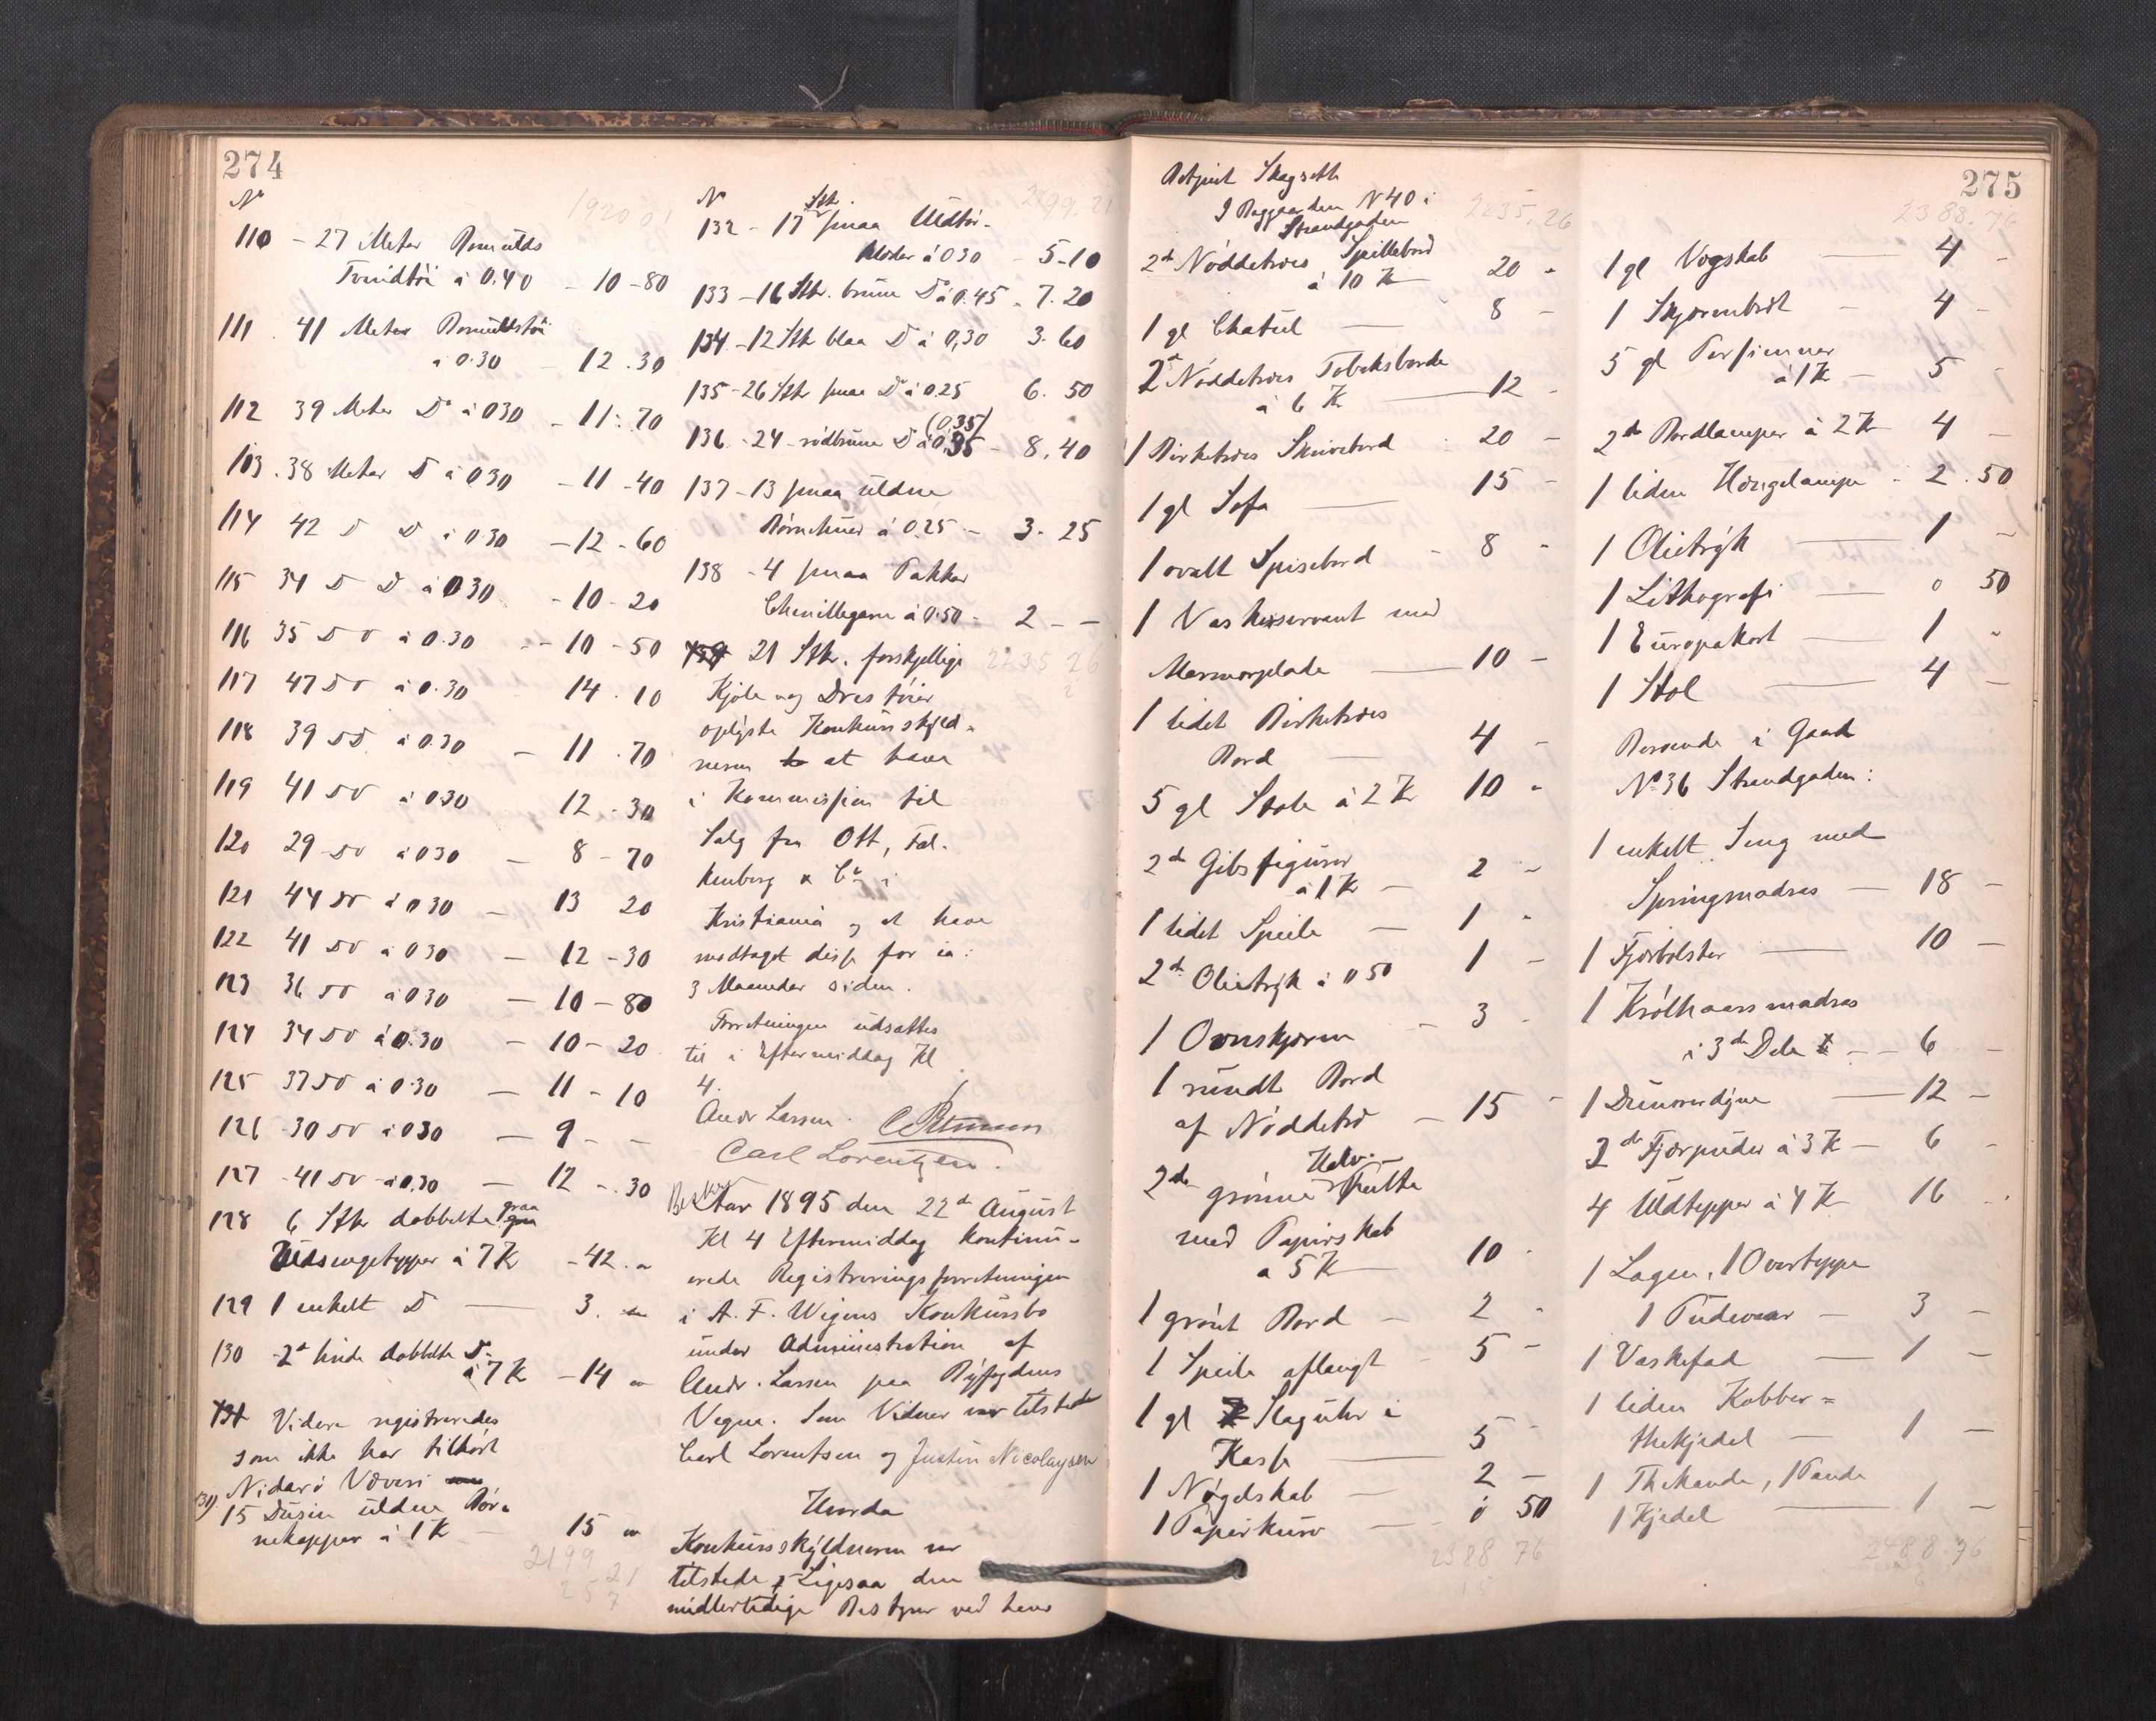 274
No
1920 01
110 - 27 Meter Bomulds
Tvindtöi à 0.40 - 10 - 80
111. 41 Meter Bomuldstöi
à 0.30 - 12.30
112 39 Meter Do à 030 - 11 - 70
113. 38 Meter D à 030 - 11 - 40
114 42 D D à 030 - 12 - 60
115 34 D D à 030 - 10 - 20
116 35 D D à 0.30 - 10 - 50
117 47 D D à 0.30 14.10
118 39 D D à 0.30 - 11.70
119 41 D D à 030 12 - 30
120 29 D D à 030 - 8 - 70
121 44 D D à 030 - 13 20
122 41 D D à 030 - 12 - 30
123 36 D D à 030 - 10 - 80
124 34 D D à 0.30 - 10 - 20
125 37 D D à 0.30 - 11 - 10
126 30 D D à 030 - 9 - -
127 - 41 D D - à 0.30 - 12 - 30
128 6 Stk dobbelte graa
Uldsengetepper à 7 K - 42. "
129 1 enkelt D - 3. "
130 - 2de hvide dobbelte D.
à 7 K - 14 "
131 Videre registreredes
som ikke har tilhört
Nidarö Væveri
131) 15 Dusin uldne Bör-
nekapper à 1 K - 15 "
2199 21
No Stk. 2199.21
132 - 17 smaa Uldtör-
klæder à 030 - 5 - 10
133 - 16 Stk. brune Do à 0.45 - 7.20
134 - 12 Stk blaa D à 0,30 3.60
135 - 26 Stk smaa Do à 0.25 6.50
(0.35)
136 - 24 - rödbrune D à 0,35 - 8,40
137 - 13 smaa uldne
Börnehuer à 0.25 - 3 - 25
138 - 4 smaa Pakker
Chenillegarn à 0.50 - 2 - -
139 21 Stk. forskjellige 2235 26
Kjole og Dres töier
oplyste Konkursskyld-
neren at have
i Kommission til
Salg fra Ott, Fal-
kenberg & Co i
Kristiania og at have
modtaget disse for ca:
3 Maaneder siden.
Forretningen udsattes
til i Eftermiddag Kl
4.
Andr Larsen.
Carl Lorentzen.
Aar 1895 den 22de August
Kl 4 Eftermiddag kontinu-
erede Registreringsforretningen
i A. F. Wigens Konkursbo
under Administration af
Andr. Larsen paa Byfogdens
Vegne. Som Vidner var tilstede
Carl Lorentsen og Justin Nicolaysen
Hvorda
Konkursskyldneren var
tilstede, Ligesaa den
midlertidige Bestyrer ved hans
275
Betjent Skagseth
I Baggaarden N 40 i
Strandgaden
2235.26
2de Nöddetræs Spillebord
à 10 K 20 "
1 gl Chatul — 8 -
2de Nöddetræs Tobaksborde
à 6 K — 12 -
1 Birketræs Skrivebord 20 -
1 gl Sofa — 15 -
1 ovalt Spisebord - 8 -
1 Vaskeservant med
Marmorplade — 10 -
1 lidet Birketræs
Bord — 4 -
5 gl Stole à 2 K 10 "
2de Gibsfigurer
à 1 K - 2 -
1 lidet Speile - 1 "
2de Olietryk à 0 50 1 -
1 Ovnskjerm - 3 -
1 rundt Bord
af Nöddetræ - 15 -
2de grönne
med Papirskab
à 5 K 10 -
1 grönt Bord - 2 -
1 Speile aflangt 5 -
1 gl Slaguhr i
Kasse — 5 -
1 Nögelskab - 2 -
1 Papirkurv - 0 50
2388 76
2388.76
1 gl Vogskab — 4 -
1 Skjermbræt - 4 -
5 gl Persienner
à 1 K - 5 -
2de Bordlamper à 2 K 4 -
1 liden Hængelampe - 2.50
1 Olietryk — 1 -
1 Lithografi — 0 50
1 Europakort — 1 "
1 Stol — 4 -
Beroende i Gaard
No 36 Strandgaden:
1 enkelt Seng med
Springmadras - 18 -
1 Fjærbolster — 10 -
1 Krölhaarsmadras
i 3de Dele - - 6 -
1 Dunoverdyne — 12 -
2de Fjærpuder à 3 K - 6 -
4 Uldtepper à 4 K 16 -
1 Lagen, 1 Overteppe
1 Pudevaar - 3 -
1 Vaskefad — 1 -
1 liden Kobber=
thekjedel - 1 -
1 Thekande, 1 Pande
1 Kjedel — 1 -
2488.76